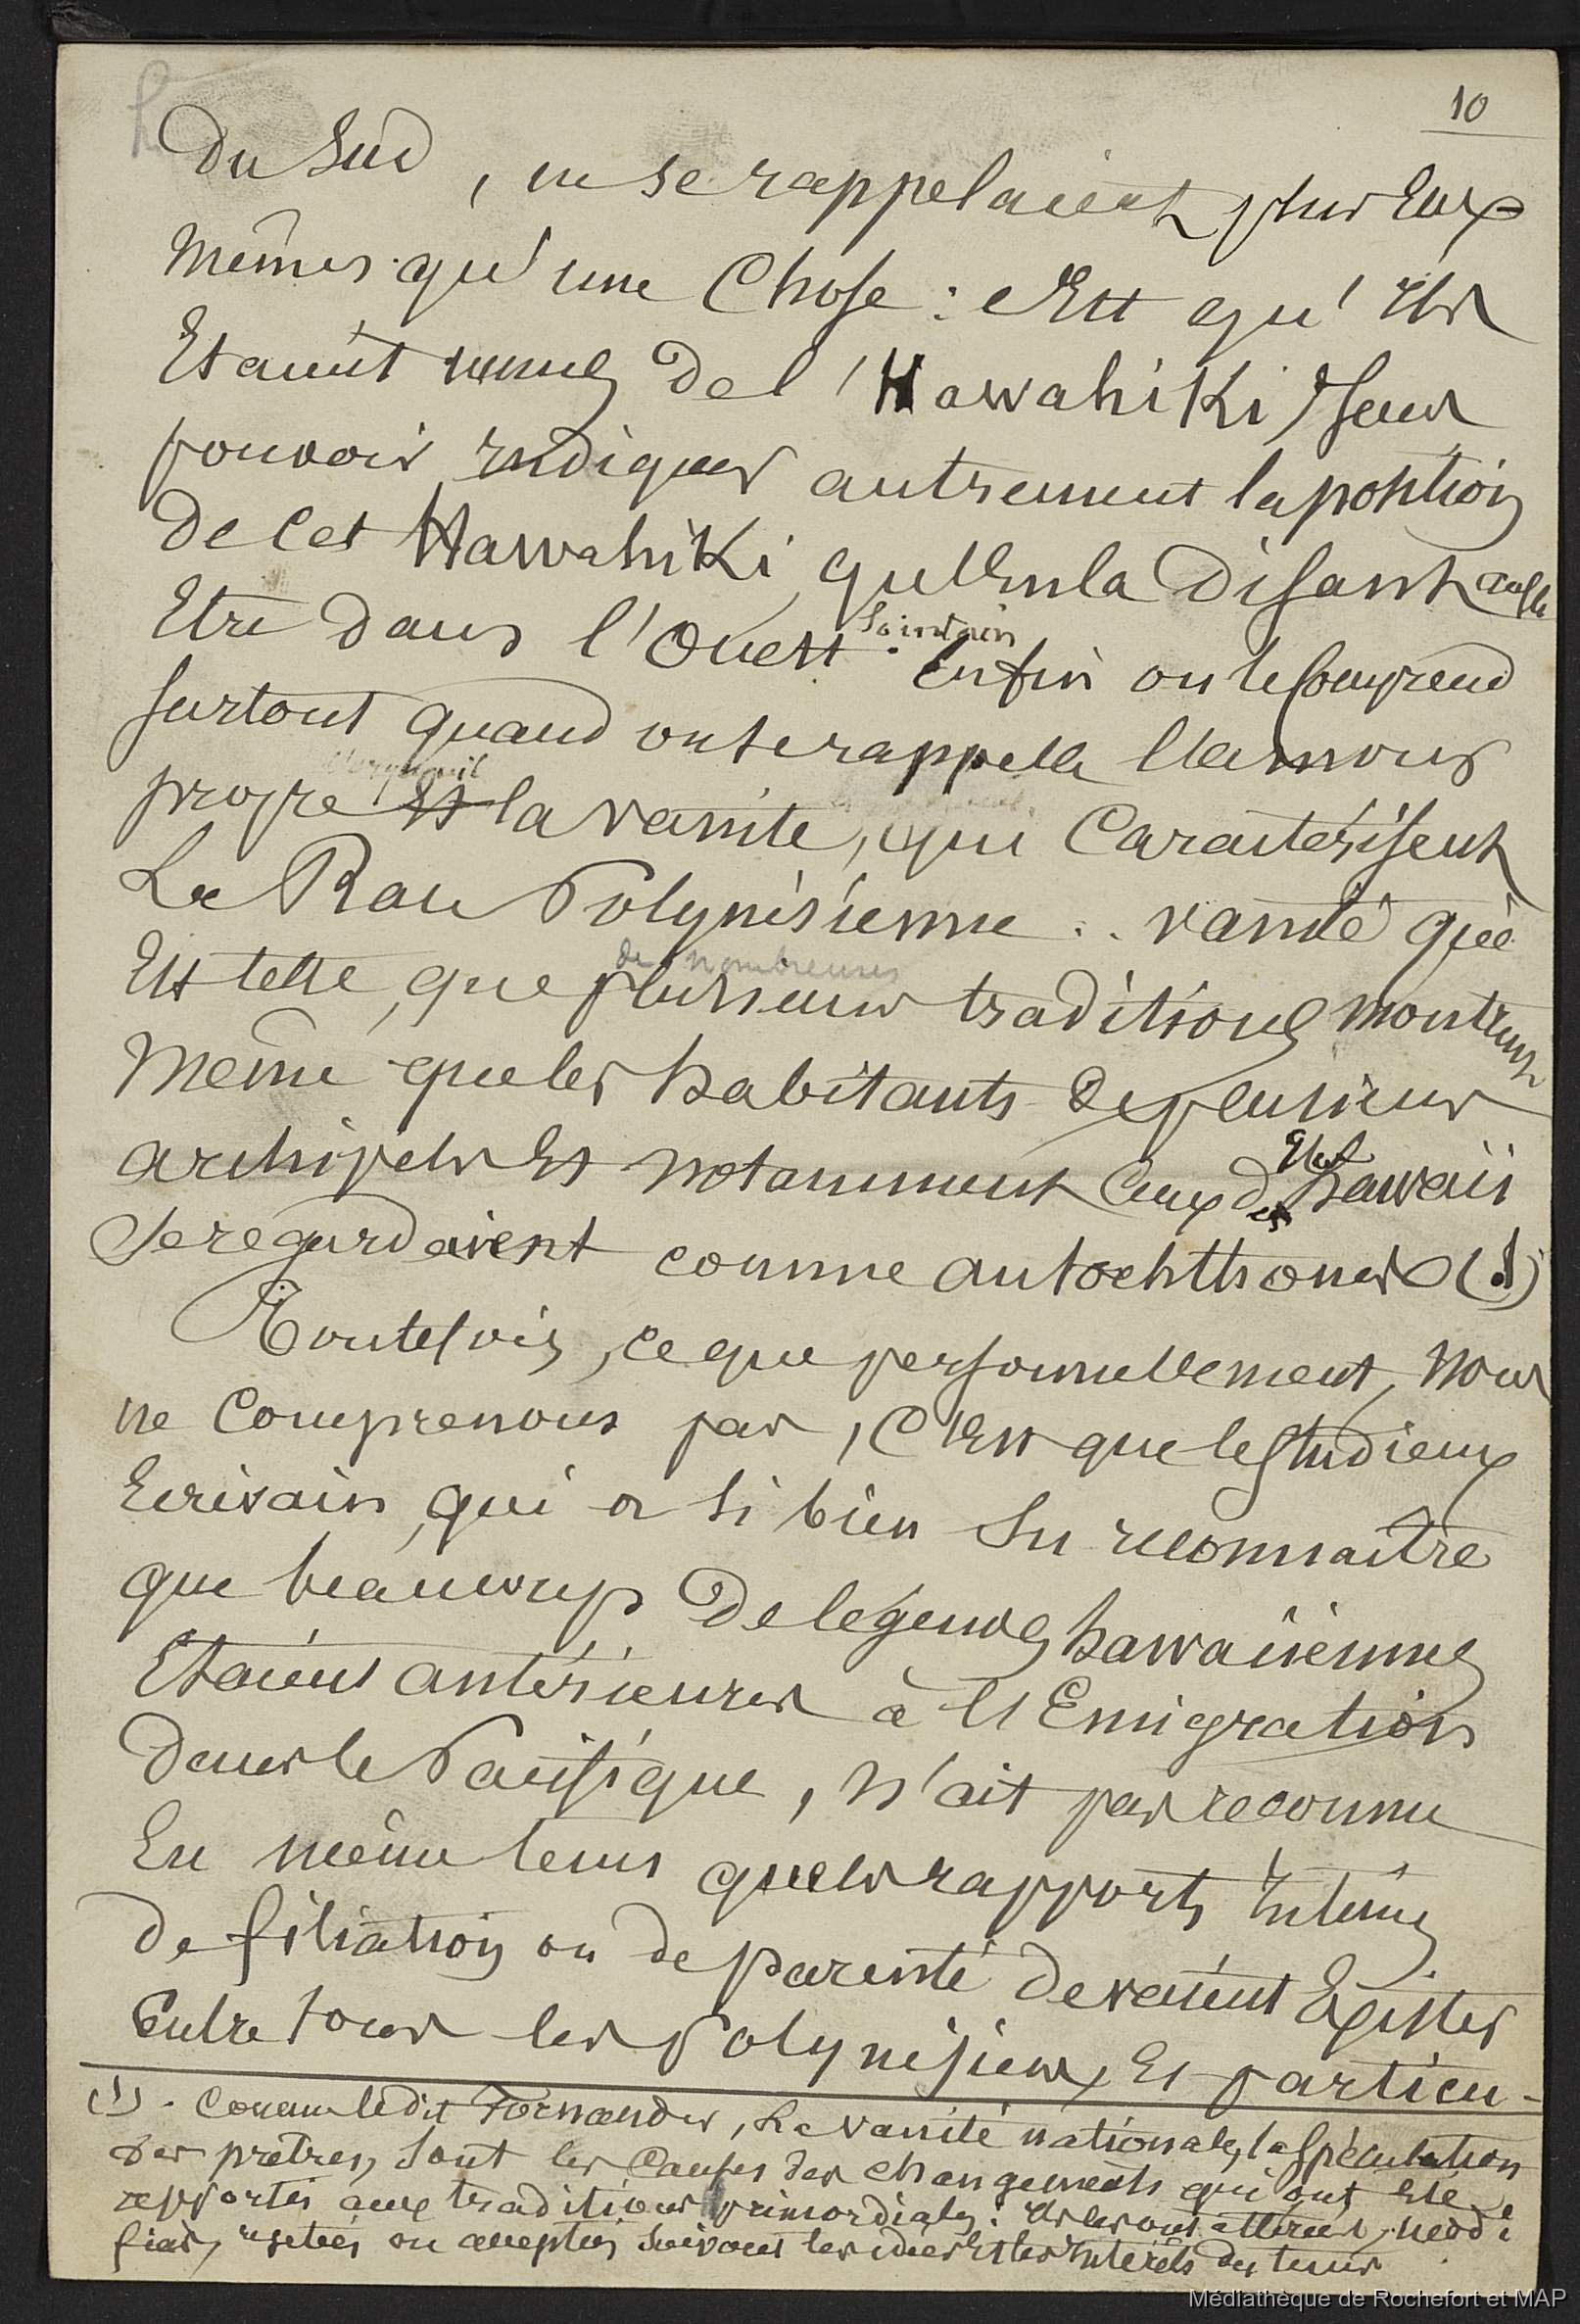 10
du Sud, ne se rappelaient plus Eux
mêmes qu'une Chose : c'Est qu'ils
Etaient venus de l'Hawahiki, sans
pouvoir indiquer autrement la position
de cet Hawahiki, qu'en la disant
Etre dans l'Ouest lointain. Enfin on le Comprend
surtout quand on se rappelle l'amour
propre Et l'orgueil la vanité, qui Caractérisent
La Race Polynésienne .. vanité qui
Est telle, que plusieurs de nombreuses traditions montrent
même que les habitants de plusieurs
archipels Et notamment Ceux des Iles hawaii
se regardaient comme autochthones (1)
Toutefois, ce que personnellement, nous
ne Comprenons pas, C'Est que le studieux
Ecrivain, qui a si bien su reconnaître
que beaucoup de légendes hawaiiennes
Etaient antérieures à l'Emigration
dans le Pacifique, n'ait pas reconnu
En même tems que les rapports intimes
de filiation ou de parenté devaient Exister
Entre tous les Polynésiens, Et particu-
(1). Comme le dit Fornander, La vanité nationale, la spéculation
des prêtres, sont les Causes des changements qui ont été
apportés aux traditions primordiales : Ils les ont altérées, modi
fiées, rejetées ou acceptées suivant les idées Et les intérêts du tems
Médiathèque de Rochefort et MAP